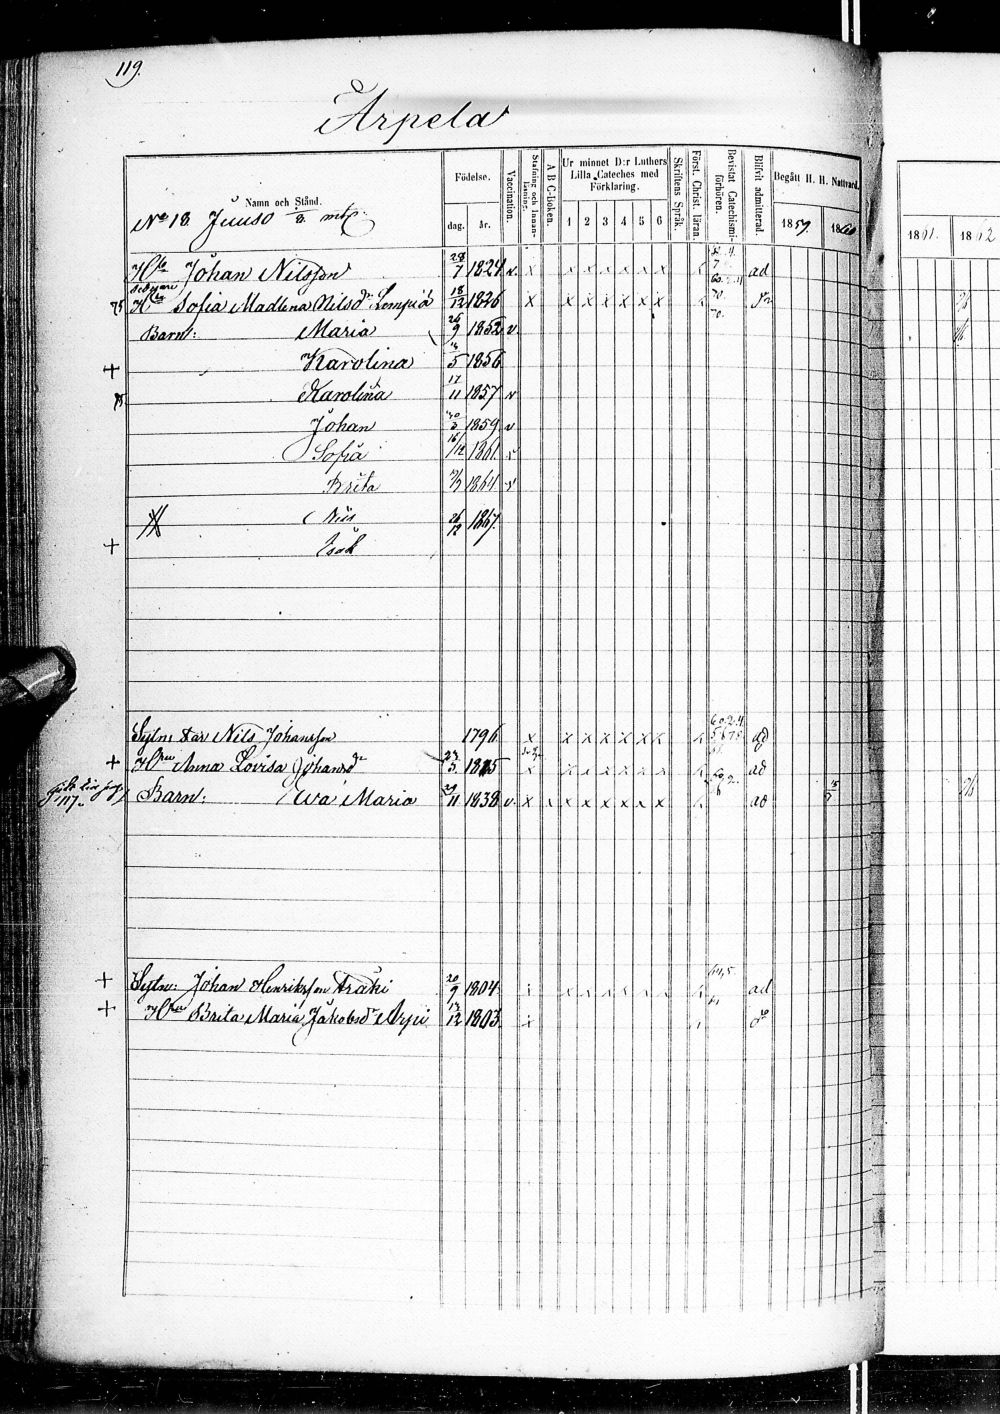 119.
Arpela
Namn och Stånd.
Födelse.
dag. år.
Vaccination.
Stafning och Innanläsning.
A B C-Boken.
Ur minnet D:r Luthers Lilla Cateches med Förklaring.
1 2 3 4 5 6
Skriftens Språk.
Först. Christ. läran.
Bevistat Catechismiförhören.
Blifvit admitterad.
Begått H. H. Nattvard.
1859. 1860
1861. 1862
No 18. Juuso 1/8 mtl.
Hb Johan Nilsson 28/7 1824 v. x x x x x x x ad
75 Sofia Madlena Nilsdr Lompiä 18/12 1826 x x x x x x x
Barn: Maria 26/9 1852 v
+ Karolina 5 1856
75 Karolina 17/11 1857 v
Johan 3 1859 v
Sofia 16/12 1861 v
Brita 1864 v
Nils 26/12 1867
+ Isak
Sytn: Far Nils Johansson 1796 x x x x x x x ad
+ Hru Anna Lovisa Johansdr 23/5 1815 x x x x x x x ad
117.
Barn: Eva Maria 29/11 1838 v. x x x x x x x ad
+ Sytn: Johan Henriksson Fräki 20/9 1804 x x x x x x x ad
+ Hru Brita Maria Jakobsdr Arpi 12 1803 x